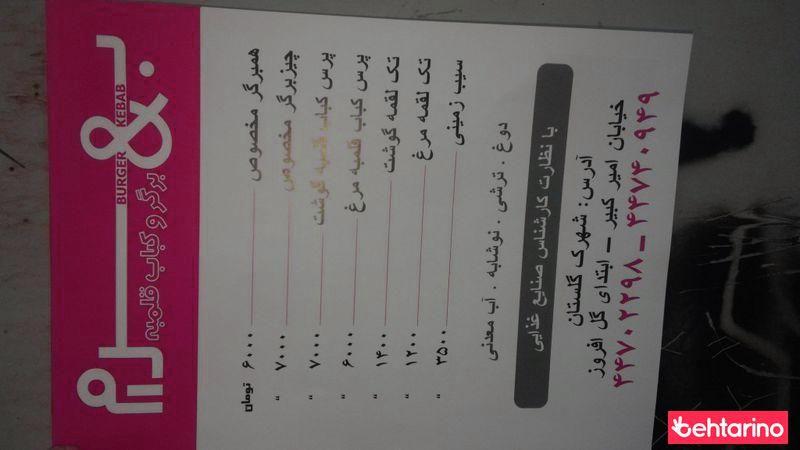 BURGER & KEBAB
برگر و کباب قلمبه
همبرگر مخصوص ۶۰۰۰ تومان
چیزبرگر مخصوص ۷۰۰۰ "
پرس کباب قلمبه گوشت ۷۰۰۰ "
پرس کباب قلمبه مرغ ۶۰۰۰ "
تک لقمه گوشت ۱۴۰۰ "
تک لقمه مرغ ۱۲۰۰ "
سیب زمینی ۳۵۰۰ "
دوغ . ترشی . نوشابه . آب معدنی
با نظارت کارشناس صنایع غذایی
آدرس: شهرک گلستان
خیابان امیر کبیر - ابتدای گل افروز
۴۴۷۰۲۲۹۸ - ۴۴۷۴۰۹۴۹
behtarino